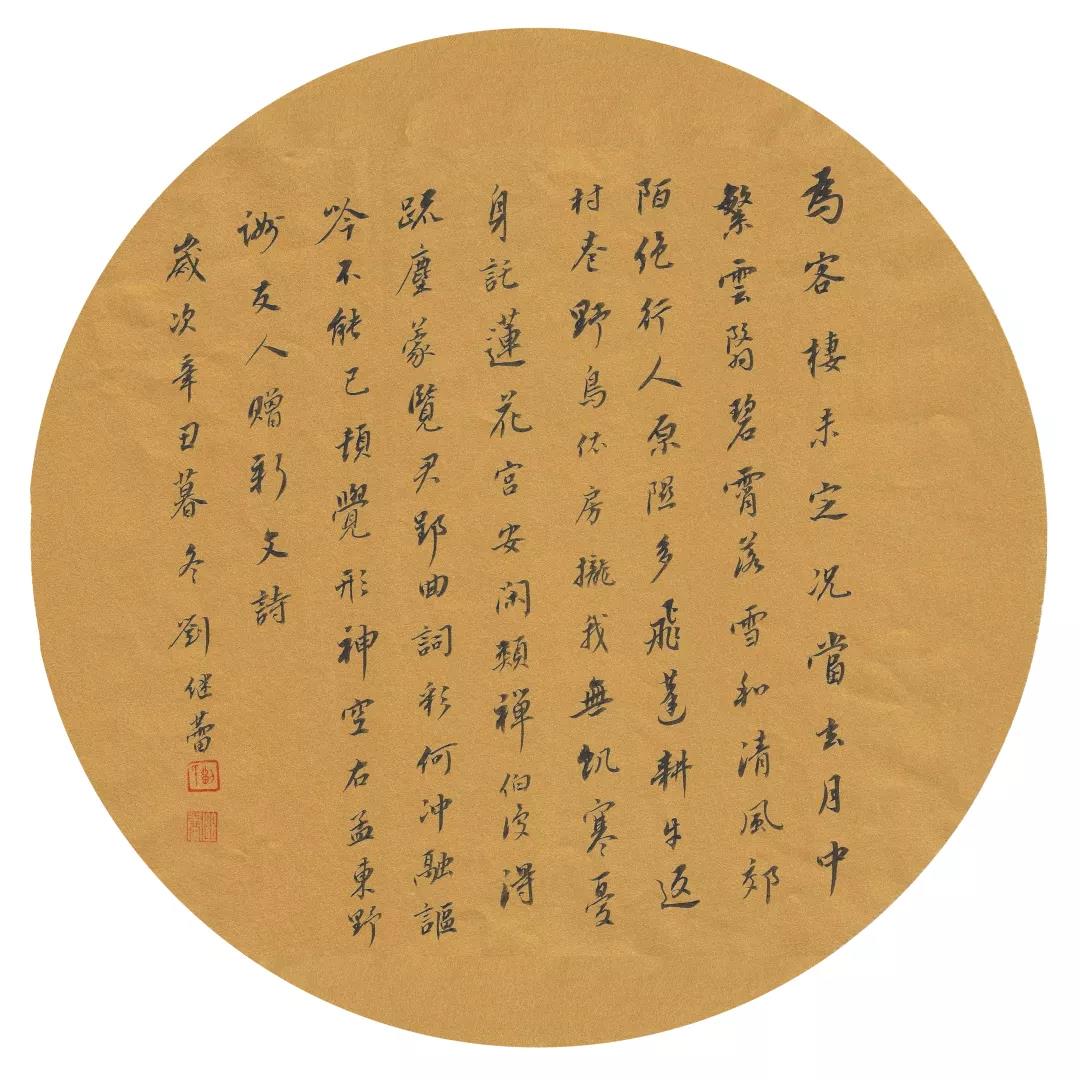 為客棲未定况當玄月中
繁雲翳碧霄落雪和清風郊
陌绝行人原隰多飛蓬耕牛返
村巷野鳥依房攏我無飢寒憂
身託蓮花宫安闲頼禅伯復得
踈塵蒙覽君郢曲詞彩何冲融謳
吟不能已頓覺形神空右孟東野
詶友人赠新文詩
歲次辛丑暮冬劉继蕾